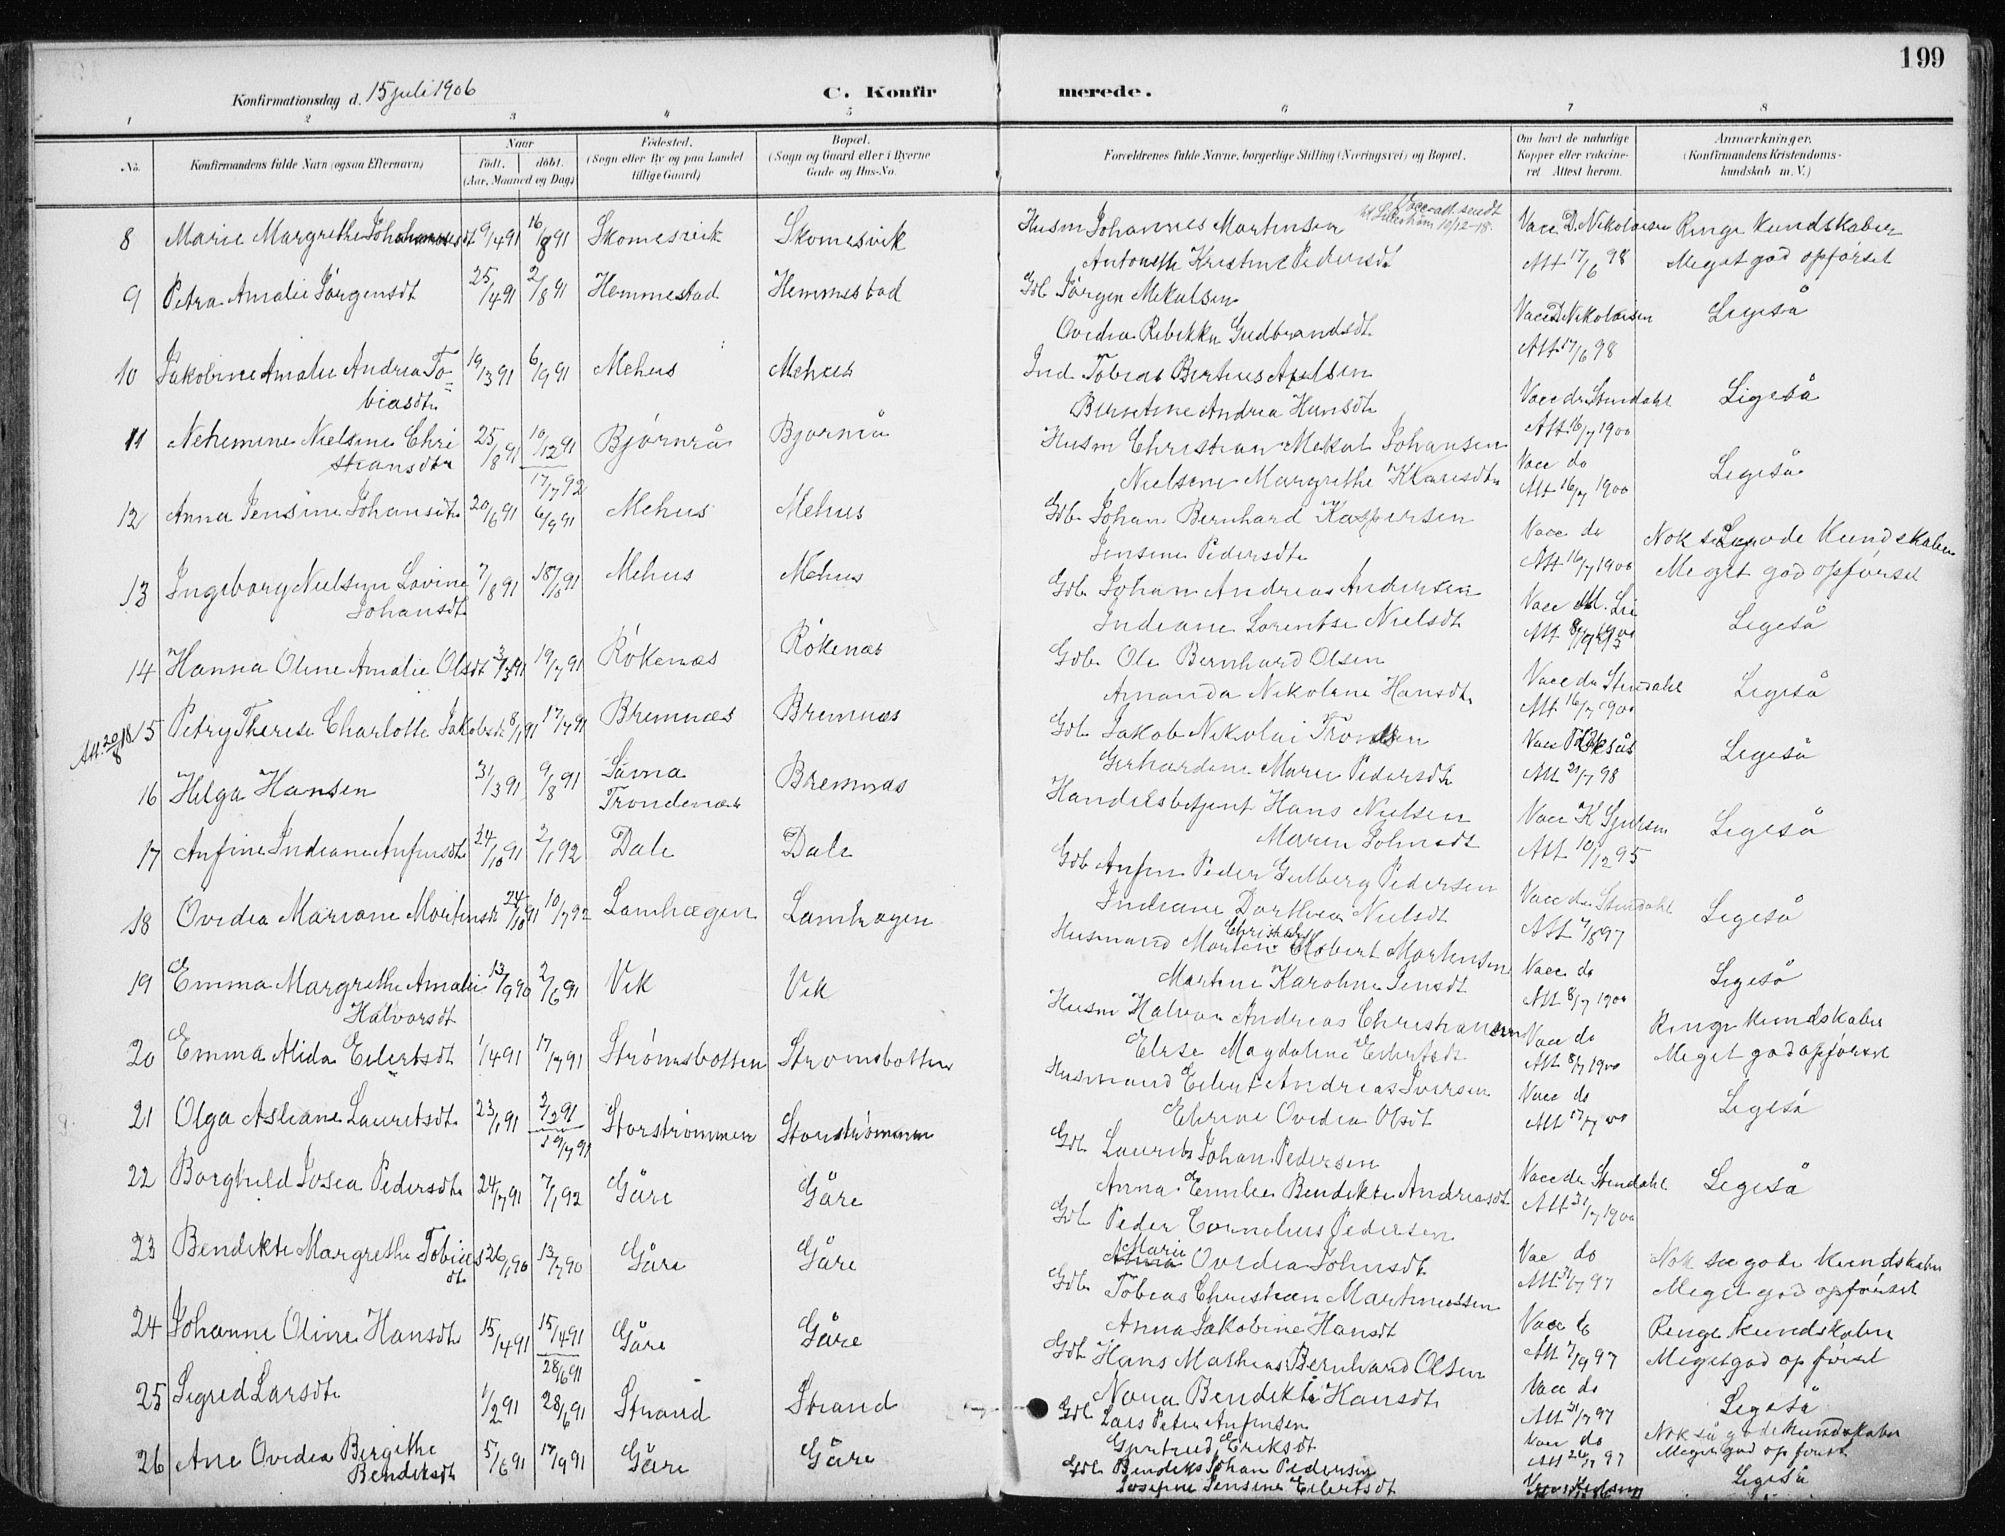 199
Konfirmationsdag d. 15 juli 1906
C. Konfir merede.
1 2 3 4 5 6 7 8
No. Konfirmandens fulde Navn (ogsaa Efternavn) Naar født. døbt. (Aar, Maaned og Dag) Fødested. (Sogn eller By og paa Landet tillige Gaard) Bopæl. (Sogn og Gaard eller i Byerne Gade og Hus-No. Forældrenes fulde Navne, borgerlige Stilling (Næringsvei) og Bopæl. Om havt de naturlige Kopper eller vaccineret. Attest herom. Anmærkninger. (Konfirmandens Kristendomskundskab m. V.)
8 Marie Margrethe Johannesdt 9/4 91 16/8 91 Skomesvik Skomesvik Husm Johannes Martinsen Vacc D. Nikolaisen Ringe Kundskaber
Vaccatt. sendt 10/12-18.
Antonette Kristine Pedersdt Att 17/6 98 Meget god opførsel
9 Petra Amalie Jørgensdt 25/4 91 2/8 91 Hemmestad Hemmestad Gdb Jørgen Mekalsen Vacc D Nikolaisen Ligeså
Ovedia Rebekka Gudbrandsdt Att 17/6 98
10 Jakobine Amalie Andrea To=
biasdt. 19/3 91 6/9 91 Mehus Mehus Ind. Tobias Berteus Axelsen Vacc dr Stendahl Ligeså
Berntine Andrea Hansdt Att 16/7 1900
11 Nehemine Nielsine Chri
stiansdtr 25/8 91 10/12 91 Bjørnrå Bjørnrå Husm Christian Mekal Johansen Vacc do Ligeså
17/7 92
Nielsine Margrethe Klausdtr Att 16/7 1900
12 Anna Jensine Johansdt. 20/6 91 6/9 91 Mehus Mehus Gdb. Johan Bernhard Kaspersen Vacc do Nok så gode Kundskaber
Jensine Pedersdtr Att 16/7 1900 Meget god opførsel
13 Ingeborg Nielsyn Lovine
Johansdt. 7/8 91 18/10 91 Mehus Mehus Gdb. Johan Andreas Andersen Vacc M. Lie Ligeså
Indiane Lorentse Nielsdt
14 Hanna Oline Amalie Olsdt 3/3 91 19/7 91 Røkenæs Røkenæs Gdb. Ole Bernhard Olsen Vacc dr Stendahl Ligeså
Amanda Nikoline Hansdt. Att 16/7 1900
Att. 20/8 18
15 Petry Therese Charlotte Jakobsdt 8/1 91 17/7 91 Bremnæs Bremnæs Gdb. Jakob Nikolai Tronsen Vacc Ligeså
Gerhardine Marie Pedersdt Att 21/7 98
16 Helga Hansen 31/3 91 9/8 91 Sama
Trondenæs Bremnæs Handelsbetjent Hans Nielsen Vacc K Ligeså
Maren Johnsdt Att 10/12 95
17 Anfine Indiane Anfinsdt. 24/10 91 2/1 92 Dale Dale Gdb Anfin Peder Gulberg Pedersen Vacc dr Stendahl Ligeså
Indiane Dorthea Nielsdt Att 7/8 97
18 Ovedia Mariane Mortensdt 24/10 91 10/7 92 Lamhægen Lamhagen Husmand Morten Christian Robert Mortensen Vacc do Ligeså
Martine Karoline Jensdt Att 8/7 1900
19 Emma Margrethe Amalie
Halvorsdt 13/9 90 2/6 91 Vik Vik Husm Halvor Andreas Christiansen Vacc do Ringe Kundskaber
Elise Magdaline Eilertsdt Att 8/7 1900 Meget god opførsel
20 Emma Alida Eilertsdt 1/4 91 17/7 91 Strømsbotten Strømsbotten Husmand Eilert Andreas Iversen Vacc do Ligeså
Elrine Ovedia Olsdt Att 17/7 00
21 Olga Asliane Lauritsdt. 23/1 91 2/2 91 Storstrømmen Storstrømmen Gdb. Laurits Johan Pedersen Vacc dr Stendahl Ligeså
19/7 91
Anna Emilie Bendikte Andreasdt Att 31/7 1900
22 Borghild Josea Pedersdt. 24/7 91 7/1 92 Gåre Gåre Gdb. Peder Cornelius Pedersen Vac do Nok saa gode Kundskaber
Marie
Anna Ovedia Johnsdt Att 31/7 97 Meget god opførsel
23 Bendikte Margrethe Tobias
dt. 26/1 90 13/7 90 Gåre Gåre Gdb. Tobias Christian Martinussen Vacc do Ringe Kundskaber
Anna Jakobine Hansdt Att 7/9 97 Meget god opførsel
24 Johanne Oline Hansdt 15/4 91 15/4 91 Gåre Gåre Gdb. Hans Mathias Bernhard Olsen Vacc do Ligeså
28/6 91
Nova Bendikte Hansdt. Att 31/7 97
25 Sigred Larsdt. 1/2 91 28/6 91 Strand Strand Gdb. Lars Peter Anfinsen Vacc do Nok så gode Kundskaber
Gjertrud Eriksdt Att 26/7 97 Meget god opførsel
26 Ane Ovedia Bergithe
Bendiksdt 5/6 91 17/9 91 Gåre Gåre Gdb. Bendiks Johan Pedersen Ligeså
Josefine Jensine Eilertsdt